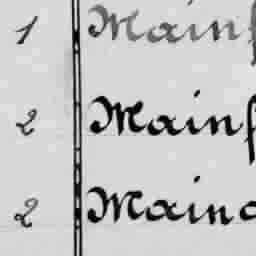 1 Mainf
2 Mainf
2 Maina